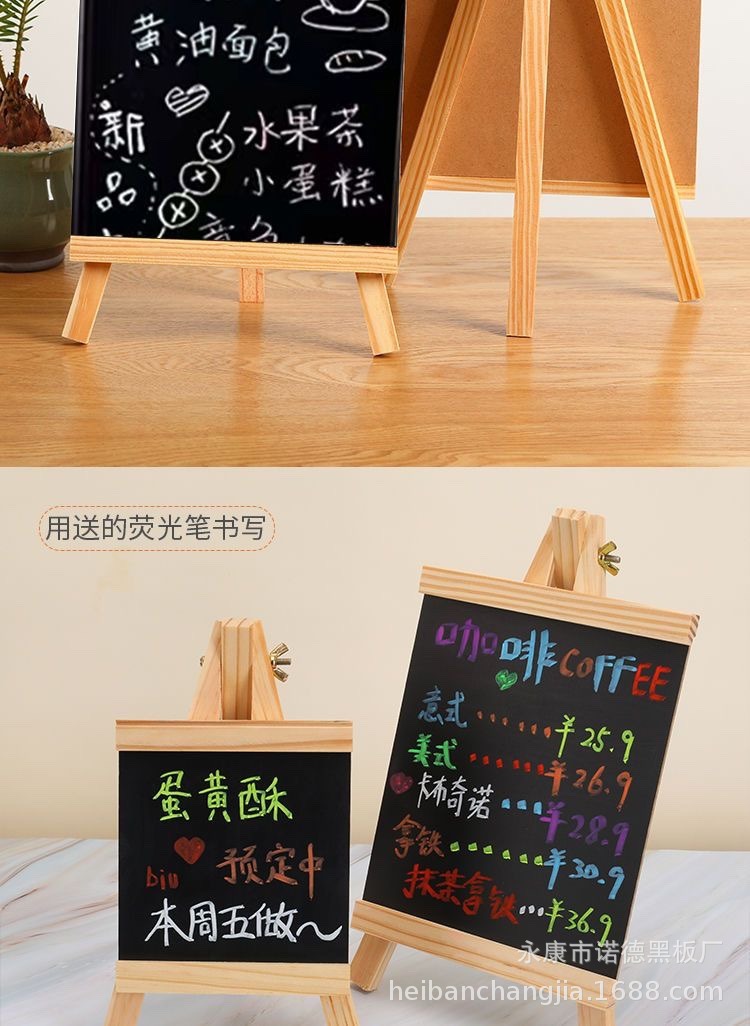 黄油面包
新
水果茶
小蛋糕
用送的荧光笔书写
咖啡COFFEE
意式......¥25.9
美式......¥26.9
卡布奇诺...¥28.9
拿铁......¥30.9
抹茶拿铁...¥36.9
蛋黄酥
biu 预定中
本周五做～
永康市诺德黑板厂
heibanchangjia.1688.com